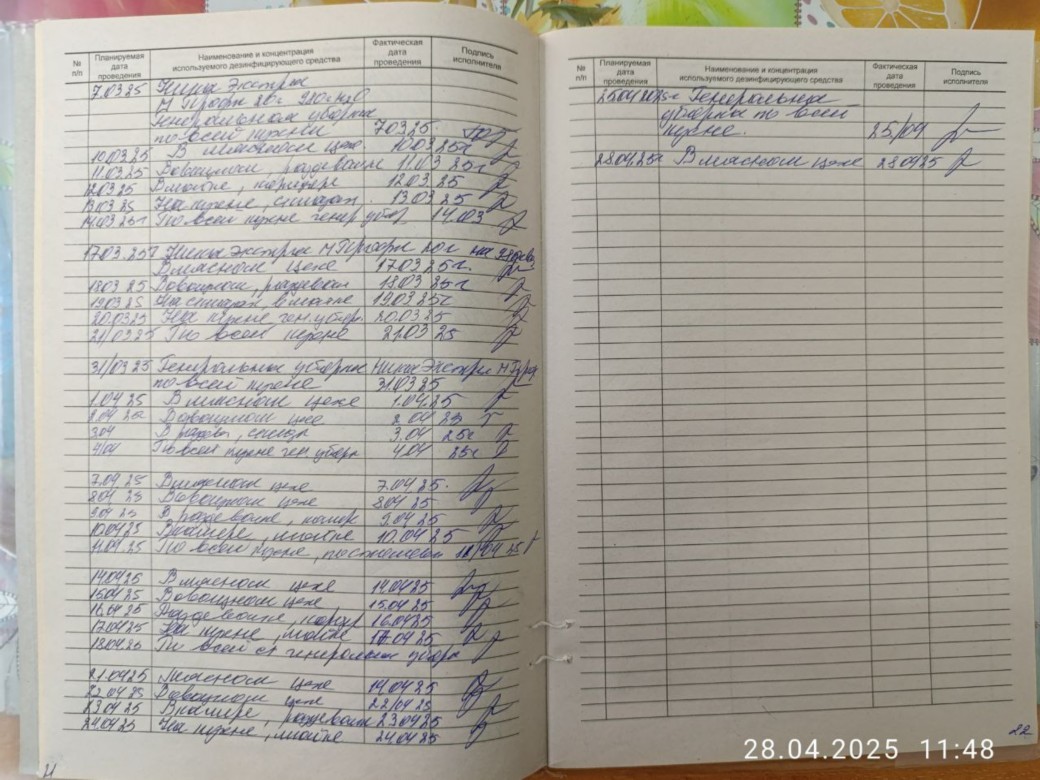 № п/п Планируемая дата проведения Наименование и концентрация используемого дезинфицирующего средства Фактическая дата проведения Подпись исполнителя
7.03 25 Ника Экстра
М
Генеральная уборка
по всей кухни 7 03 25.
10.03 25 В мясном цехе. 10.03 25г
11.03 25 В овощном, раздевалке 11.03 25г
12.03 25 В мойке, коридоре 12.03 25
13.03 25 На кухне, 13.03 25
14.03 25г По всей кухне генер убор 14.03
17.03.25г Ника Экстра М 20г на
В мясном цехе 17.03 25г.
18.03 25 В овощном, раздевал 18.03 25г
19.03 25 На в мойке 19.03 25г
20.03 25 На кухне ген. убор. 20.03 25
21/03 25 По всей кухне 21.03 25
31/03 25 Генеральная уборка Ника Экстра М
по всей кухне 31.03 25
1.04 25 В мясном цехе 1.04.25
2.04 25 В овощном цехе 2 04 25
3.04 В 3.04 25г
4/04 По всей кухне ген. уборк 4.04 25г
7.04 25 В мясном цехе 7.04 25.
8.04 25 В овощном цехе 8.04 25
9.04 25 В раздевалке, 9.04 25
10.04 25 мойке 10.04 25
11.04 25 По всей кухне, 11/04 25
14.04 25 В мясном цехе 14.04 25
15.04 25 В овощном цехе 15.04 25
16.04 25 Раздевалке, 16.04 25
17.04 25 На кухне, мойке 17.04 25
18.04.25 По всей генеральная уборк
21.04 25 Мясном цехе 14 04 25
22.04 25 В овощном цехе 22/04 25
23.04 25 раздевалк 23.04 25
24.04 25 На кухне, мойке 24.04 25
21
№ п/п Планируемая дата проведения Наименование и концентрация используемого дезинфицирующего средства Фактическая дата проведения Подпись исполнителя
25.04 25г Генеральная
уборка по всей
кухне. 25/04
28.04.25г В мясном цехе 28 04 25
22
28.04.2025 11:48